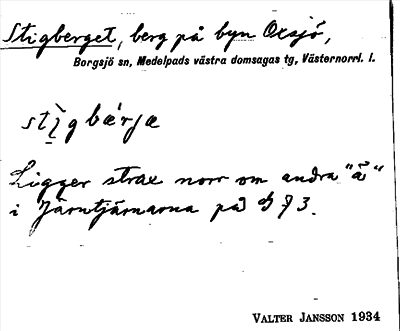 Stigberget, berg på byn Oxsjö,
Borgsjö sn, Medelpads västra domsagas tg, Västernorrl. l.
stìgbǽrjæ
Ligger strax norr om andra "ä"
i Järntjärnarna på
VALTER JANSSON 1934